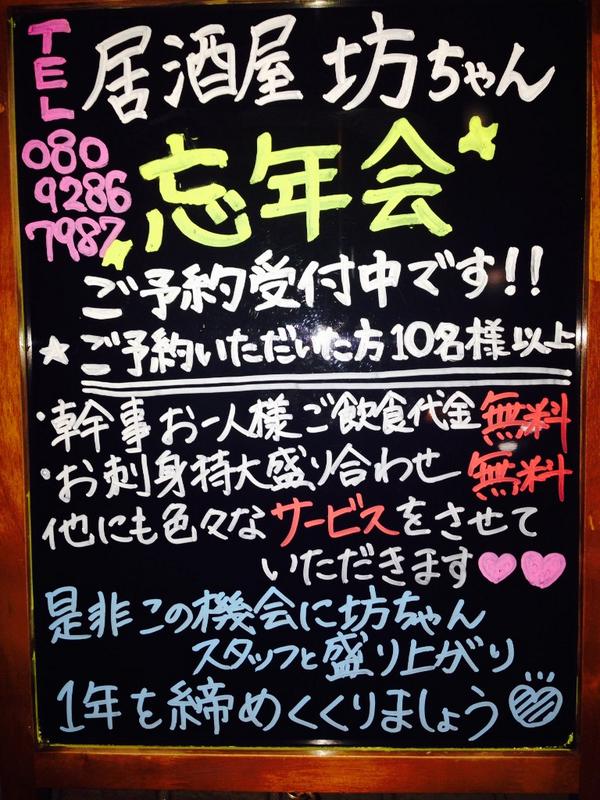 TEL
080
9286
7987
居酒屋 坊ちゃん
忘年会
ご予約受付中です!!
★ご予約いただいた方10名様以上
・幹事お一人様ご飲食代金無料
・お刺身特大盛り合わせ無料
他にも色々なサービスをさせて
いただきます
是非この機会に坊ちゃん
スタッフと盛り上がり
1年を締めくくりましょう